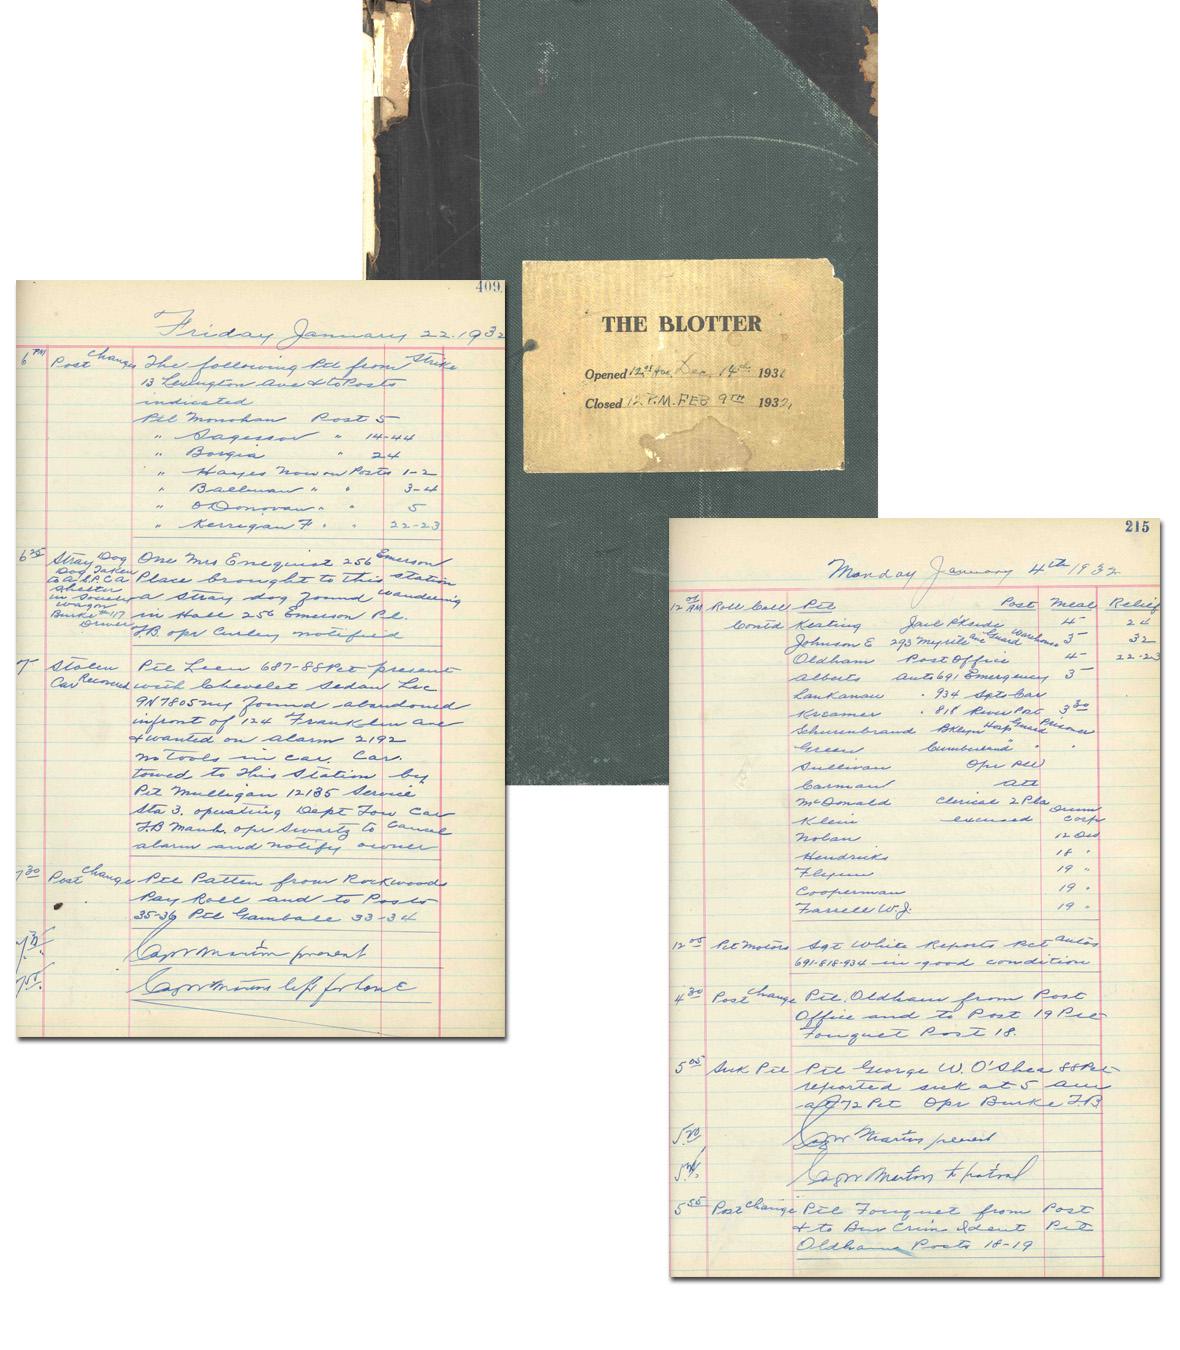 THE BLOTTER
Opened 12 Dec. 14th 1931
Closed 12 P.M. FEB 9TH 1932
409
Friday January 22. 1932
6 PM Post Change The following Ptl from Strike
13 Lexington Ave & to Posts
indicated
Ptl Monohan Post 5
" " 14-44
" Borgia " 24
" Hayes Now on Posts 1-2
" Ballman " " 3-4
" O'Donovan " " 5
" Kerrigan F " " 22-23
6 25 Stray Dog One Mrs Enequist 256 Emerson
Dog Taken
to A.S.P.C.A Place brought to this station
Shelter
in Society a stray dog found wandering
wagon
Burke #117 in Hall 256 Emerson Pl.
Driver T.B. opr Curley notified
7 Stolen Ptl Leen 687-88 Pct present
Car Recovered with Chevelet Sedan Lic
9N7805 ny found abandoned
infront of 124 Franklin ave
& wanted on alarm 2192
no tools in car. Car.
towed to this Station by
Pct Mulligan 12135 Service
Sta 3. operating Dept Tow Car
T.B Manh. opr Swartz to Cancel
alarm and notify owner
7 30 Post Change Ptl Patten from Rockwoods
Pay Roll and to Posts
35-36 Ptl Gambale 33-34
7 35 Capt Martin present
7 55 Capt Martin left for home
215
Monday January 4th 1932
12 01 AM Roll Call Ptl Post Meal Relief
Contd Keating Jail Pkside 4 24
Johnson E 293 Myrtle Ave Guard Warehouse 3 32
Oldham Post Office 4 22-23
Alberts Auto 691 Emergency 3
Lankanau " 934 Sgts Car
Kreamer " 818 River Pat 3 30
Schurenbrand Bklyn Hosp Guard Prisoner
Green Cumberland " "
Sullivan Opr Ptl
Carman Att
McDonald Clerical 2 Pla
Klein excused Drum Corp
Nolan 12 Old
Hendricks 18 "
Flynn 19 "
Cooperman 19 "
Farrell W.J. 19 "
12 05 Pct Motors Sgt White Reports Pct autos
691-818-934 in good condition
4 30 Post Change Ptl. Oldham from Post
Office and to Post 19 Ptl
Fouquet Post 18.
5 05 Sick Ptl Ptl George W. O'Shea 88 Pct
reported sick at 5 Am
at 72 Pct Opr Burke T.B
5 20 Capt Martin present
Capt Martin to patrol
5 55 Post Change Ptl Fouquet from Post
& to Bur Crim Ident Ptl
Oldham Posts 18-19